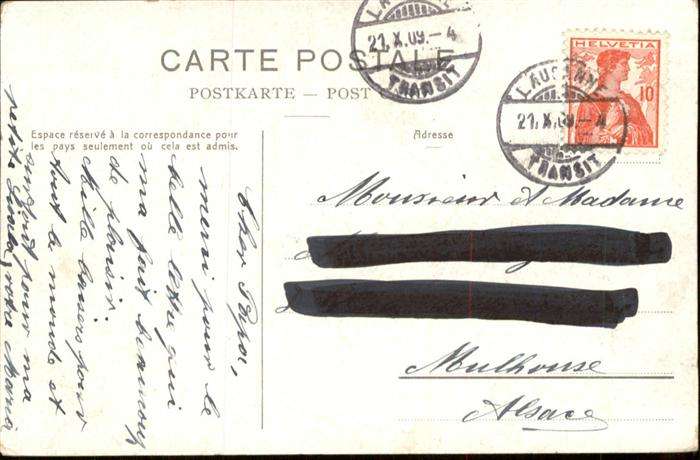 CARTE POSTALE
POSTKARTE — POST
Espace réservé à la correspondance pour
les pays seulement où cela est admis.
Adresse
LAUSANNE
21.X.09.–4
TRANSIT
LAUSANNE
21.X.09.–4
TRANSIT
HELVETIA
10
Monsieur et Madame
Mulhouse
Alsace
Cher Papa,
merci pour la
belle lettre qui
ma fait beaucoup
de plaisir.
Mille baisers pour
tout le monde et
surtout pour ma
petite